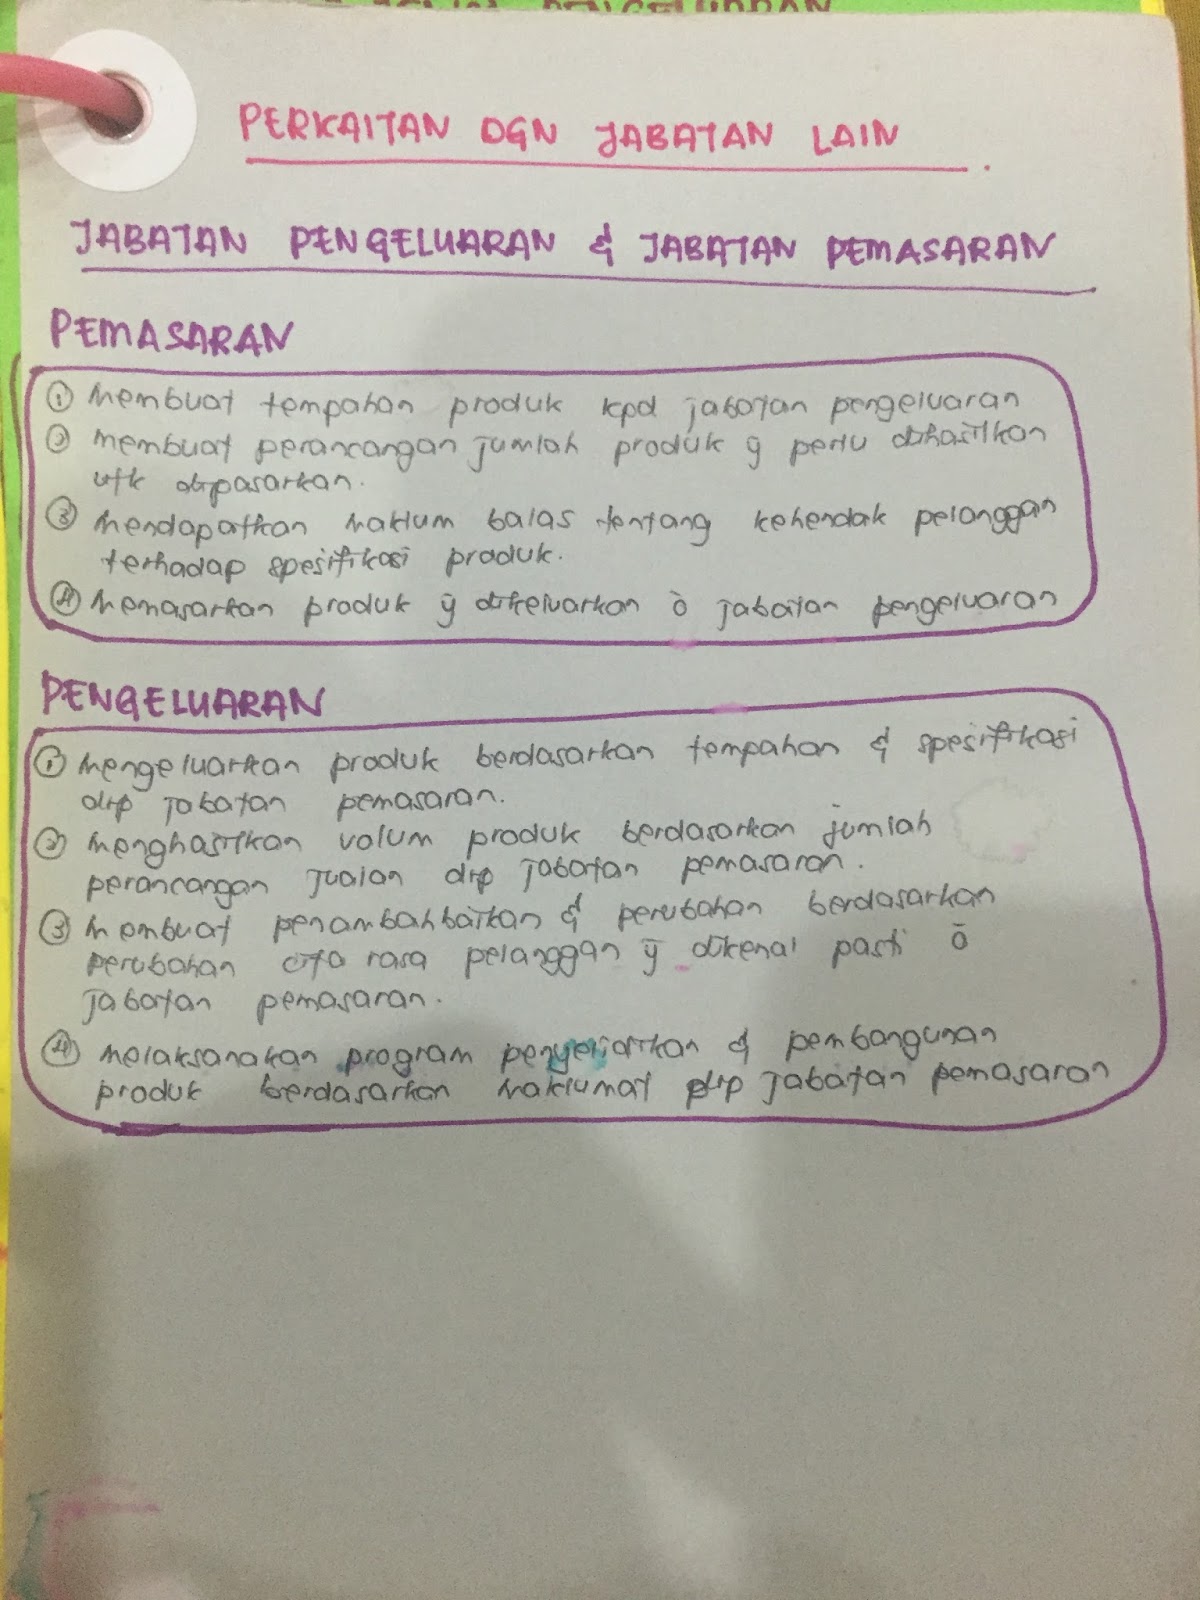 PENGELUARAN
PERKAITAN DGN JABATAN LAIN
JABATAN PENGELUARAN & JABATAN PEMASARAN
PEMASARAN
① Membuat tempahan produk kpd jabatan pengeluaran
② membuat perancangan jumlah produk y perlu dihasilkan
utk dipasarkan.
③ Mendapatkan maklum balas tentang kehendak pelanggan
terhadap spesifikasi produk.
④ Memasarkan produk ȳ dikeluarkan ō jabatan pengeluaran
PENGELUARAN
① Mengeluarkan produk berdasarkan tempahan & spesifikasi
drp jabatan pemasaran.
② Menghasilkan volum produk berdasarkan jumlah
perancangan jualan drp jabatan pemasaran.
③ Membuat penambahbaikan & perubahan berdasarkan
perubahan cita rasa pelanggan ȳ dikenal pasti ō
jabatan pemasaran.
④ Melaksanakan program penyelidikan & pembangunan
produk berdasarkan maklumat drp jabatan pemasaran